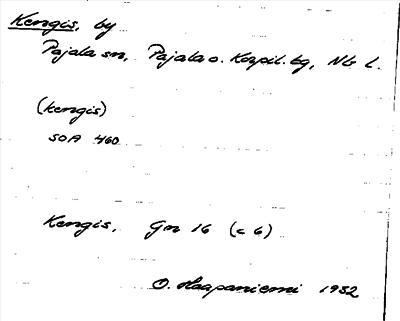 Kengis, by
Pajala sn, Pajala o. Korpil. tg, Nb l.
(kengis)
SOA 460
Kengis, Gn 16 (c 6)
O. Haapaniemi 1932